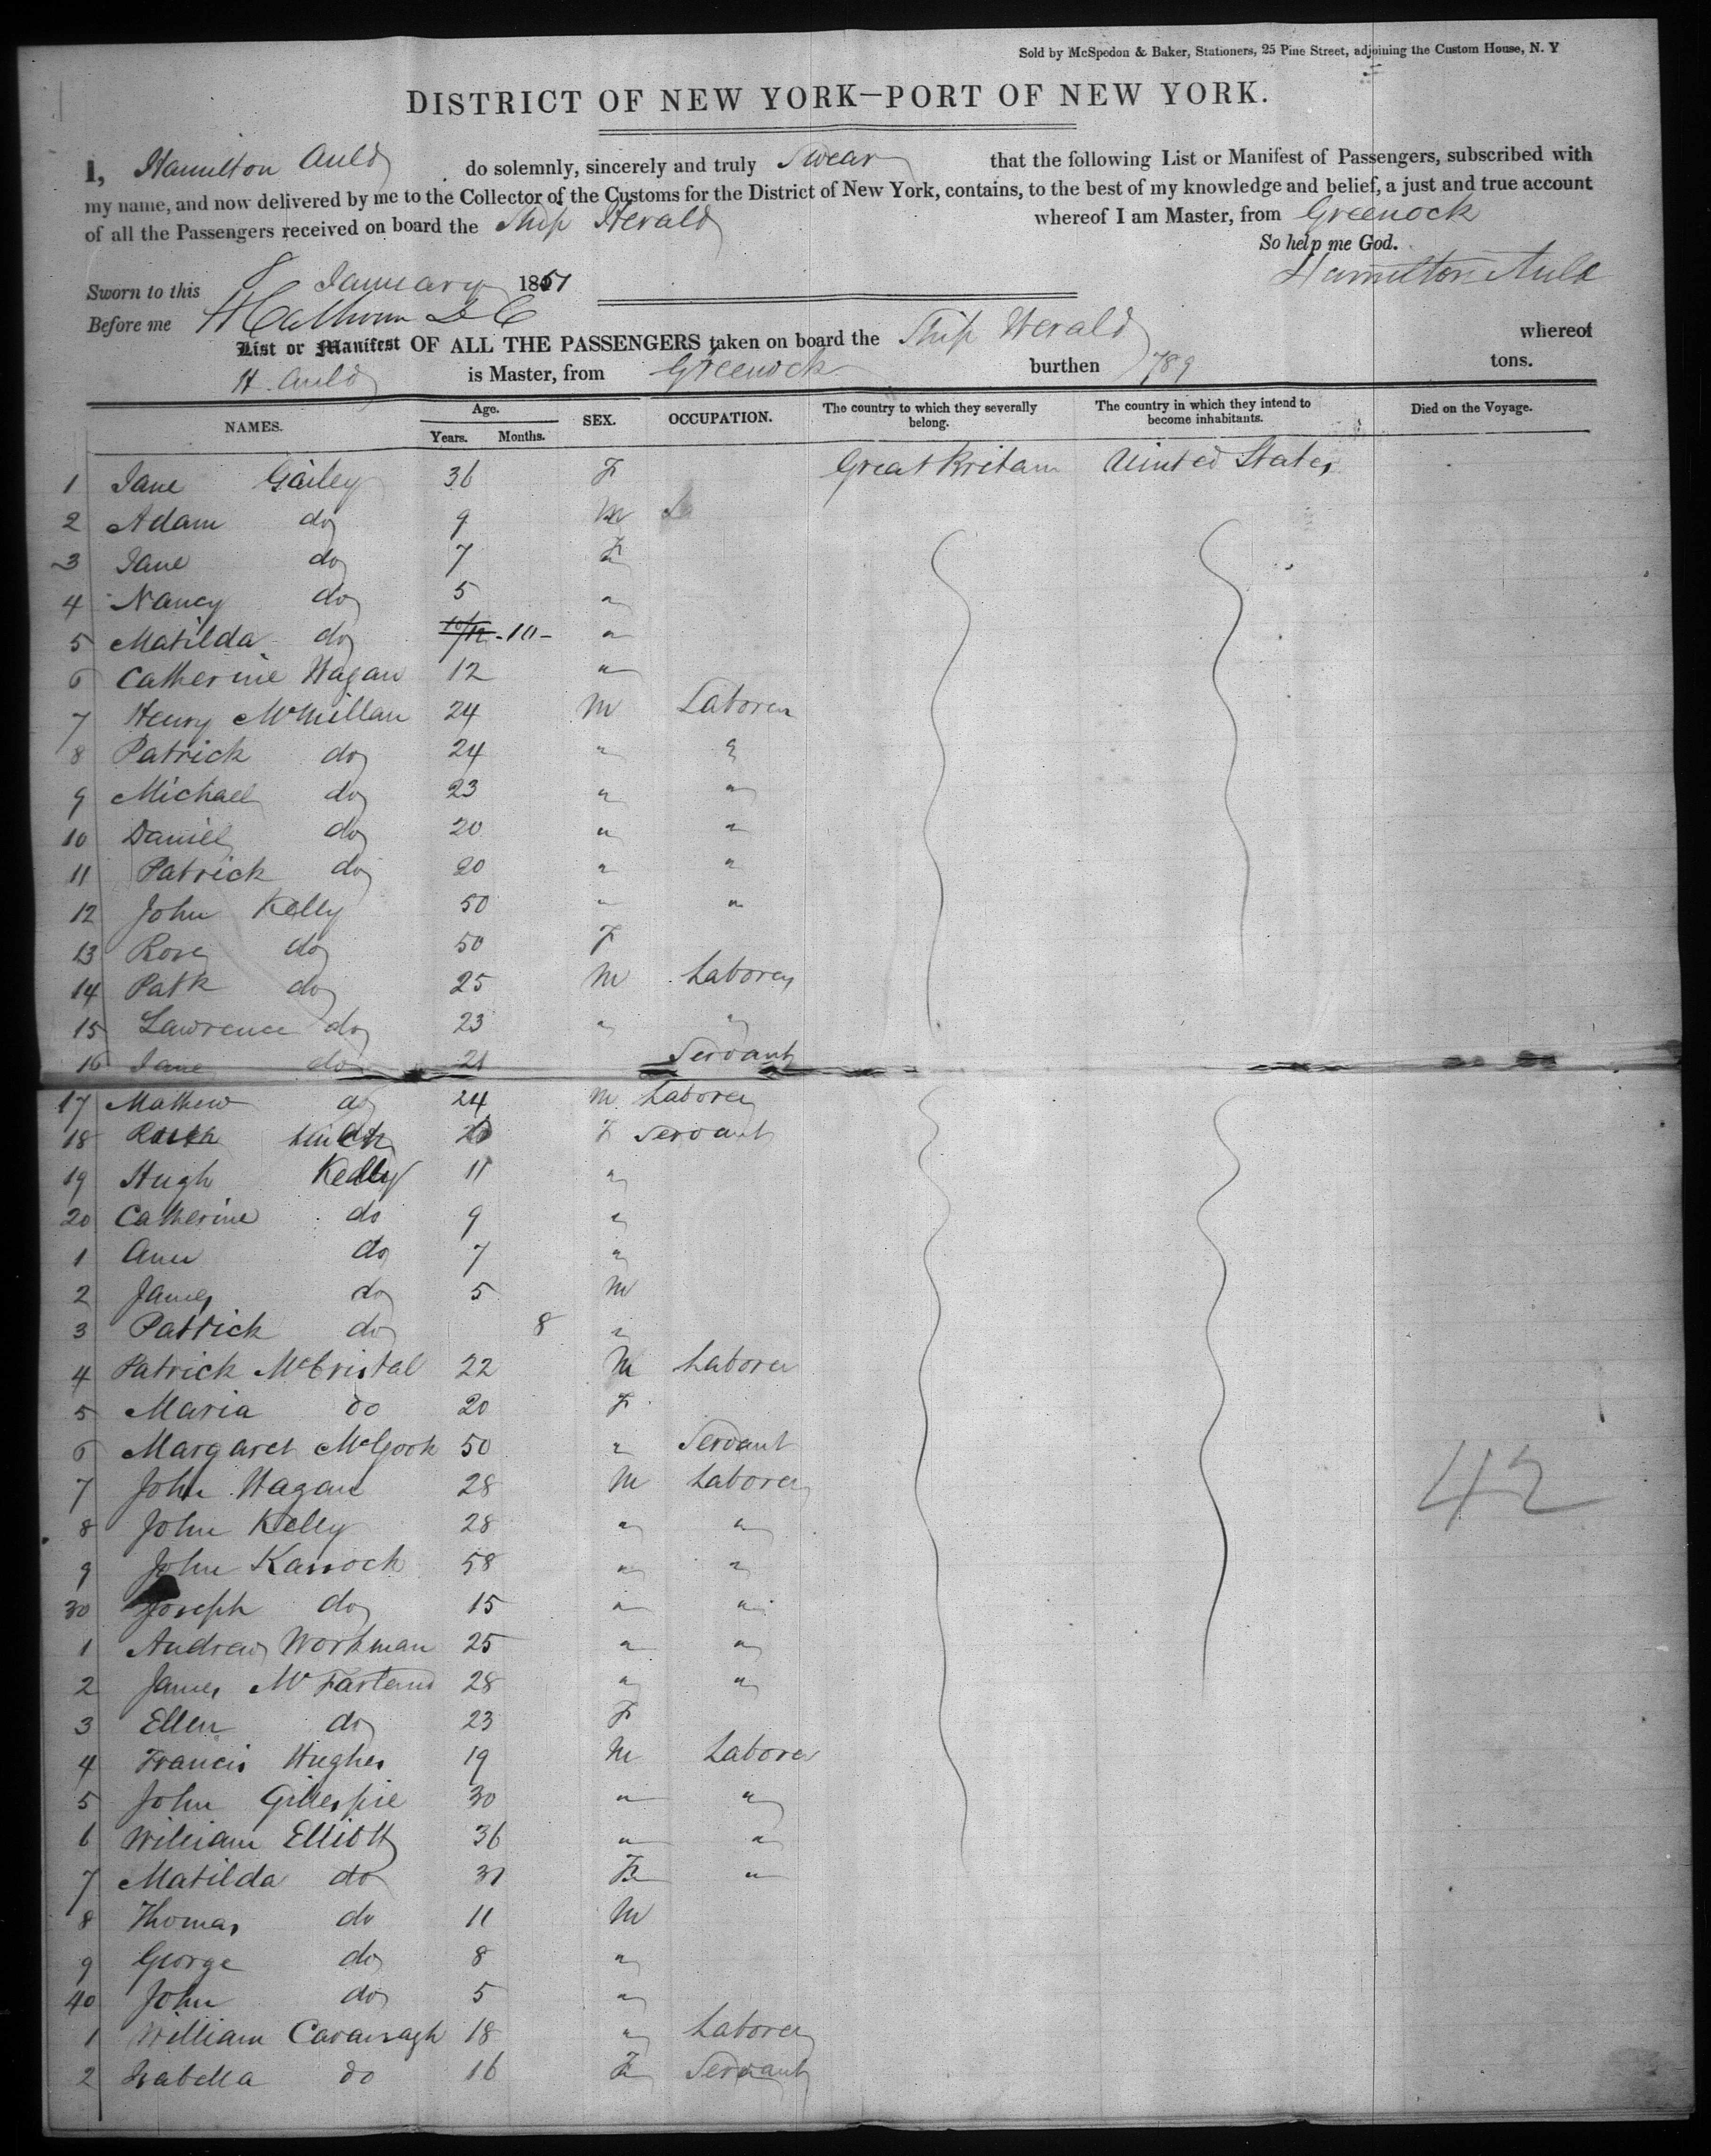 Sold by McSpedon & Baker, Stationers, 25 Pine Street, adjoining the Custom House, N. Y
DISTRICT OF NEW YORK—PORT OF NEW YORK.
I, Hamilton Auld do solemnly, sincerely and truly Swear that the following List or Manifest of Passengers, subscribed with
my name, and now delivered by me to the Collector of the Customs for the District of New York, contains, to the best of my knowledge and belief, a just and true account
of all the Passengers received on board the Ship Herald whereof I am Master, from Greenock
So help me God.
Sworn to this 8 January 1851 Hamilton Auld
Before me
List or Manifest OF ALL THE PASSENGERS taken on board the Ship Herald whereof
H. Auld is Master, from Greenock burthen 789 tons.
NAMES. Age. Years. Months. SEX. OCCUPATION. The country to which they severally belong. The country in which they intend to become inhabitants. Died on the Voyage.
1 Jane Gailey 36 F Great Britain United States
2 Adam do 9 M
3 Jane do 7 F
4 Nancy do 5 "
5 Matilda do 10/12 - 10 - "
6 Catherine Hagan 12 "
7 Henry McMillan 24 M Laborer
8 Patrick do 24 " "
9 Michael do 23 " "
10 Daniel do 20 " "
11 Patrick do 20 " "
12 John Kelly 50 " "
13 Rose do 50 F
14 Patk do 25 M Laborer
15 Lawrence do 23 " "
16 Jane do 21 Servant
17 Mathew do 24 M Laborer
18 F Servant
19 Hugh Kelly 11 "
20 Catherine do 9 "
1 Ann do 7 "
2 James do 5 M
3 Patrick do 8 "
4 Patrick McCristal 22 M Laborer
5 Maria do 20 F
6 Margaret McGook 50 " Servant
7 John Hagan 28 M Laborer
8 John Kelly 28 " "
9 John Karroch 58 " "
30 Joseph do 15 " "
1 Andrew Workman 25 " "
2 James McFarland 28 " "
3 Ellen do 23 F
4 Francis Hughes 19 M Laborer
5 John Gillespie 30 " "
6 William Elliott 36 " "
7 Matilda do 31 F "
8 Thomas do 11 M
9 George do 8 "
40 John do 5 "
1 William Cavanagh 18 " Laborer
2 Isabella do 16 F Servant
42